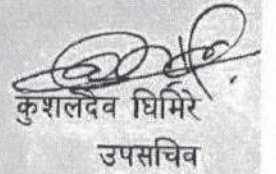 कुशलदेव घिमिरे
उपसचिव